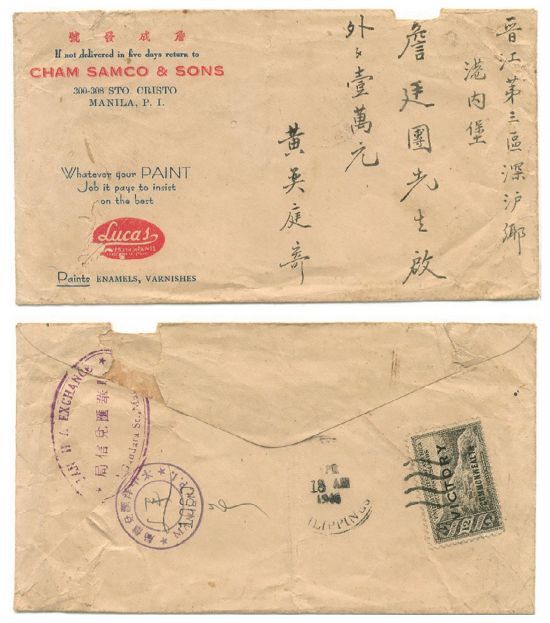 號發成詹
If not delivered in five days return to
CHAM SAMCO & SONS
300-308 STO. CRISTO
MANILA, P. I.
Whatever your PAINT
Job it pays to insist
on the best
Lucas
Paints ENAMELS, VARNISHES
晋江第三區深沪鄉
港内堡
詹廷團先生啟
外匁壹萬元
黄奕庭寄
EXCHANGE
華匯兌信局
18 AM
1946
ILIPPINES
VICTORY
COMMONWEALTH